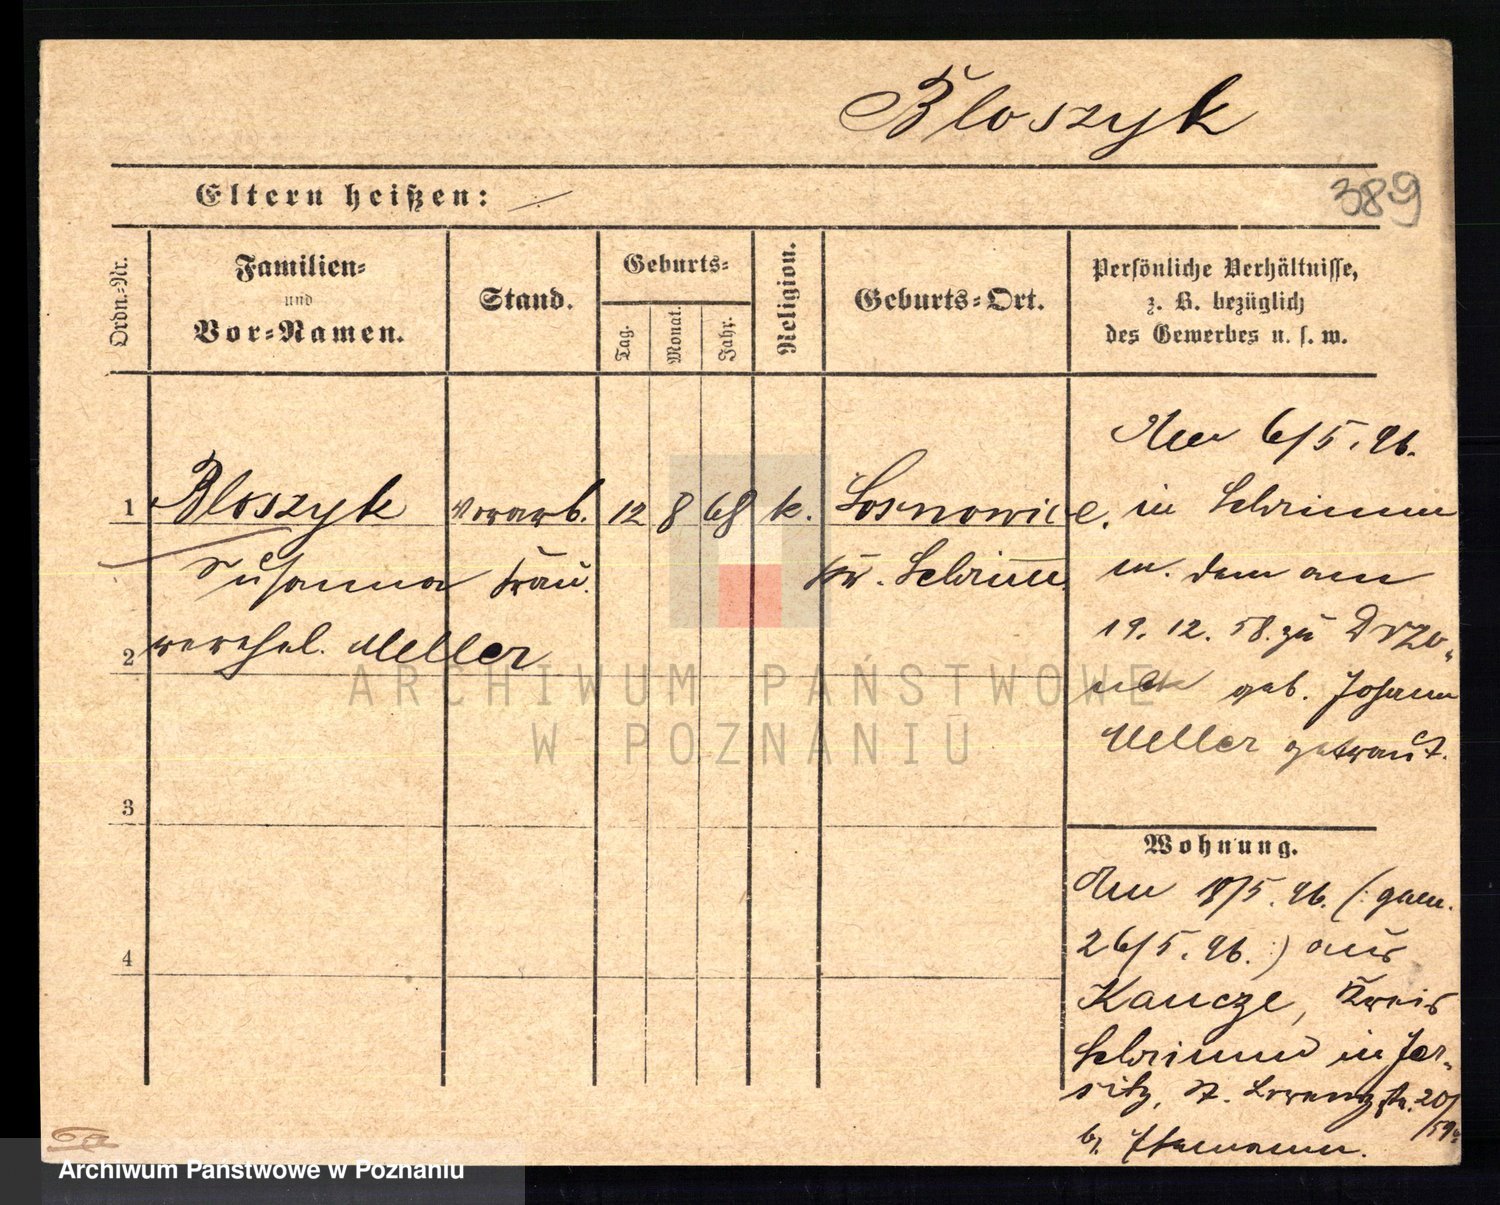 Bloszyk
Eltern heißen:
389
Ordn.-Nr.
Familien-
und
Vor-Namen.
Stand.
Geburts-
Tag.
Monat.
Jahr.
Religion.
Geburts-Ort.
Persönliche Verhältnisse,
z. B. bezüglich
des Gewerbes u. s. w.
Am 6/5. 96.
1 Bloszyk Vorarb. 12 8 68 k. Sosnowice, in Schrimm
Susanna frau. Kr. Schrimm m. dem am
19. 12. 58. zu
2 verehel. Meller
geb. Johann
Meller getraut.
3
Wohnung.
Am 18/5. 96. (: gem.
26/5. 96. :) aus
4
Kaucze, Kreis
Schrimm in Jer-
sitz, St. Lorenzstr. 20/
59a
b.
ARCHIWUM PAŃSTWOWE
W POZNANIU
Archiwum Państwowe w Poznaniu